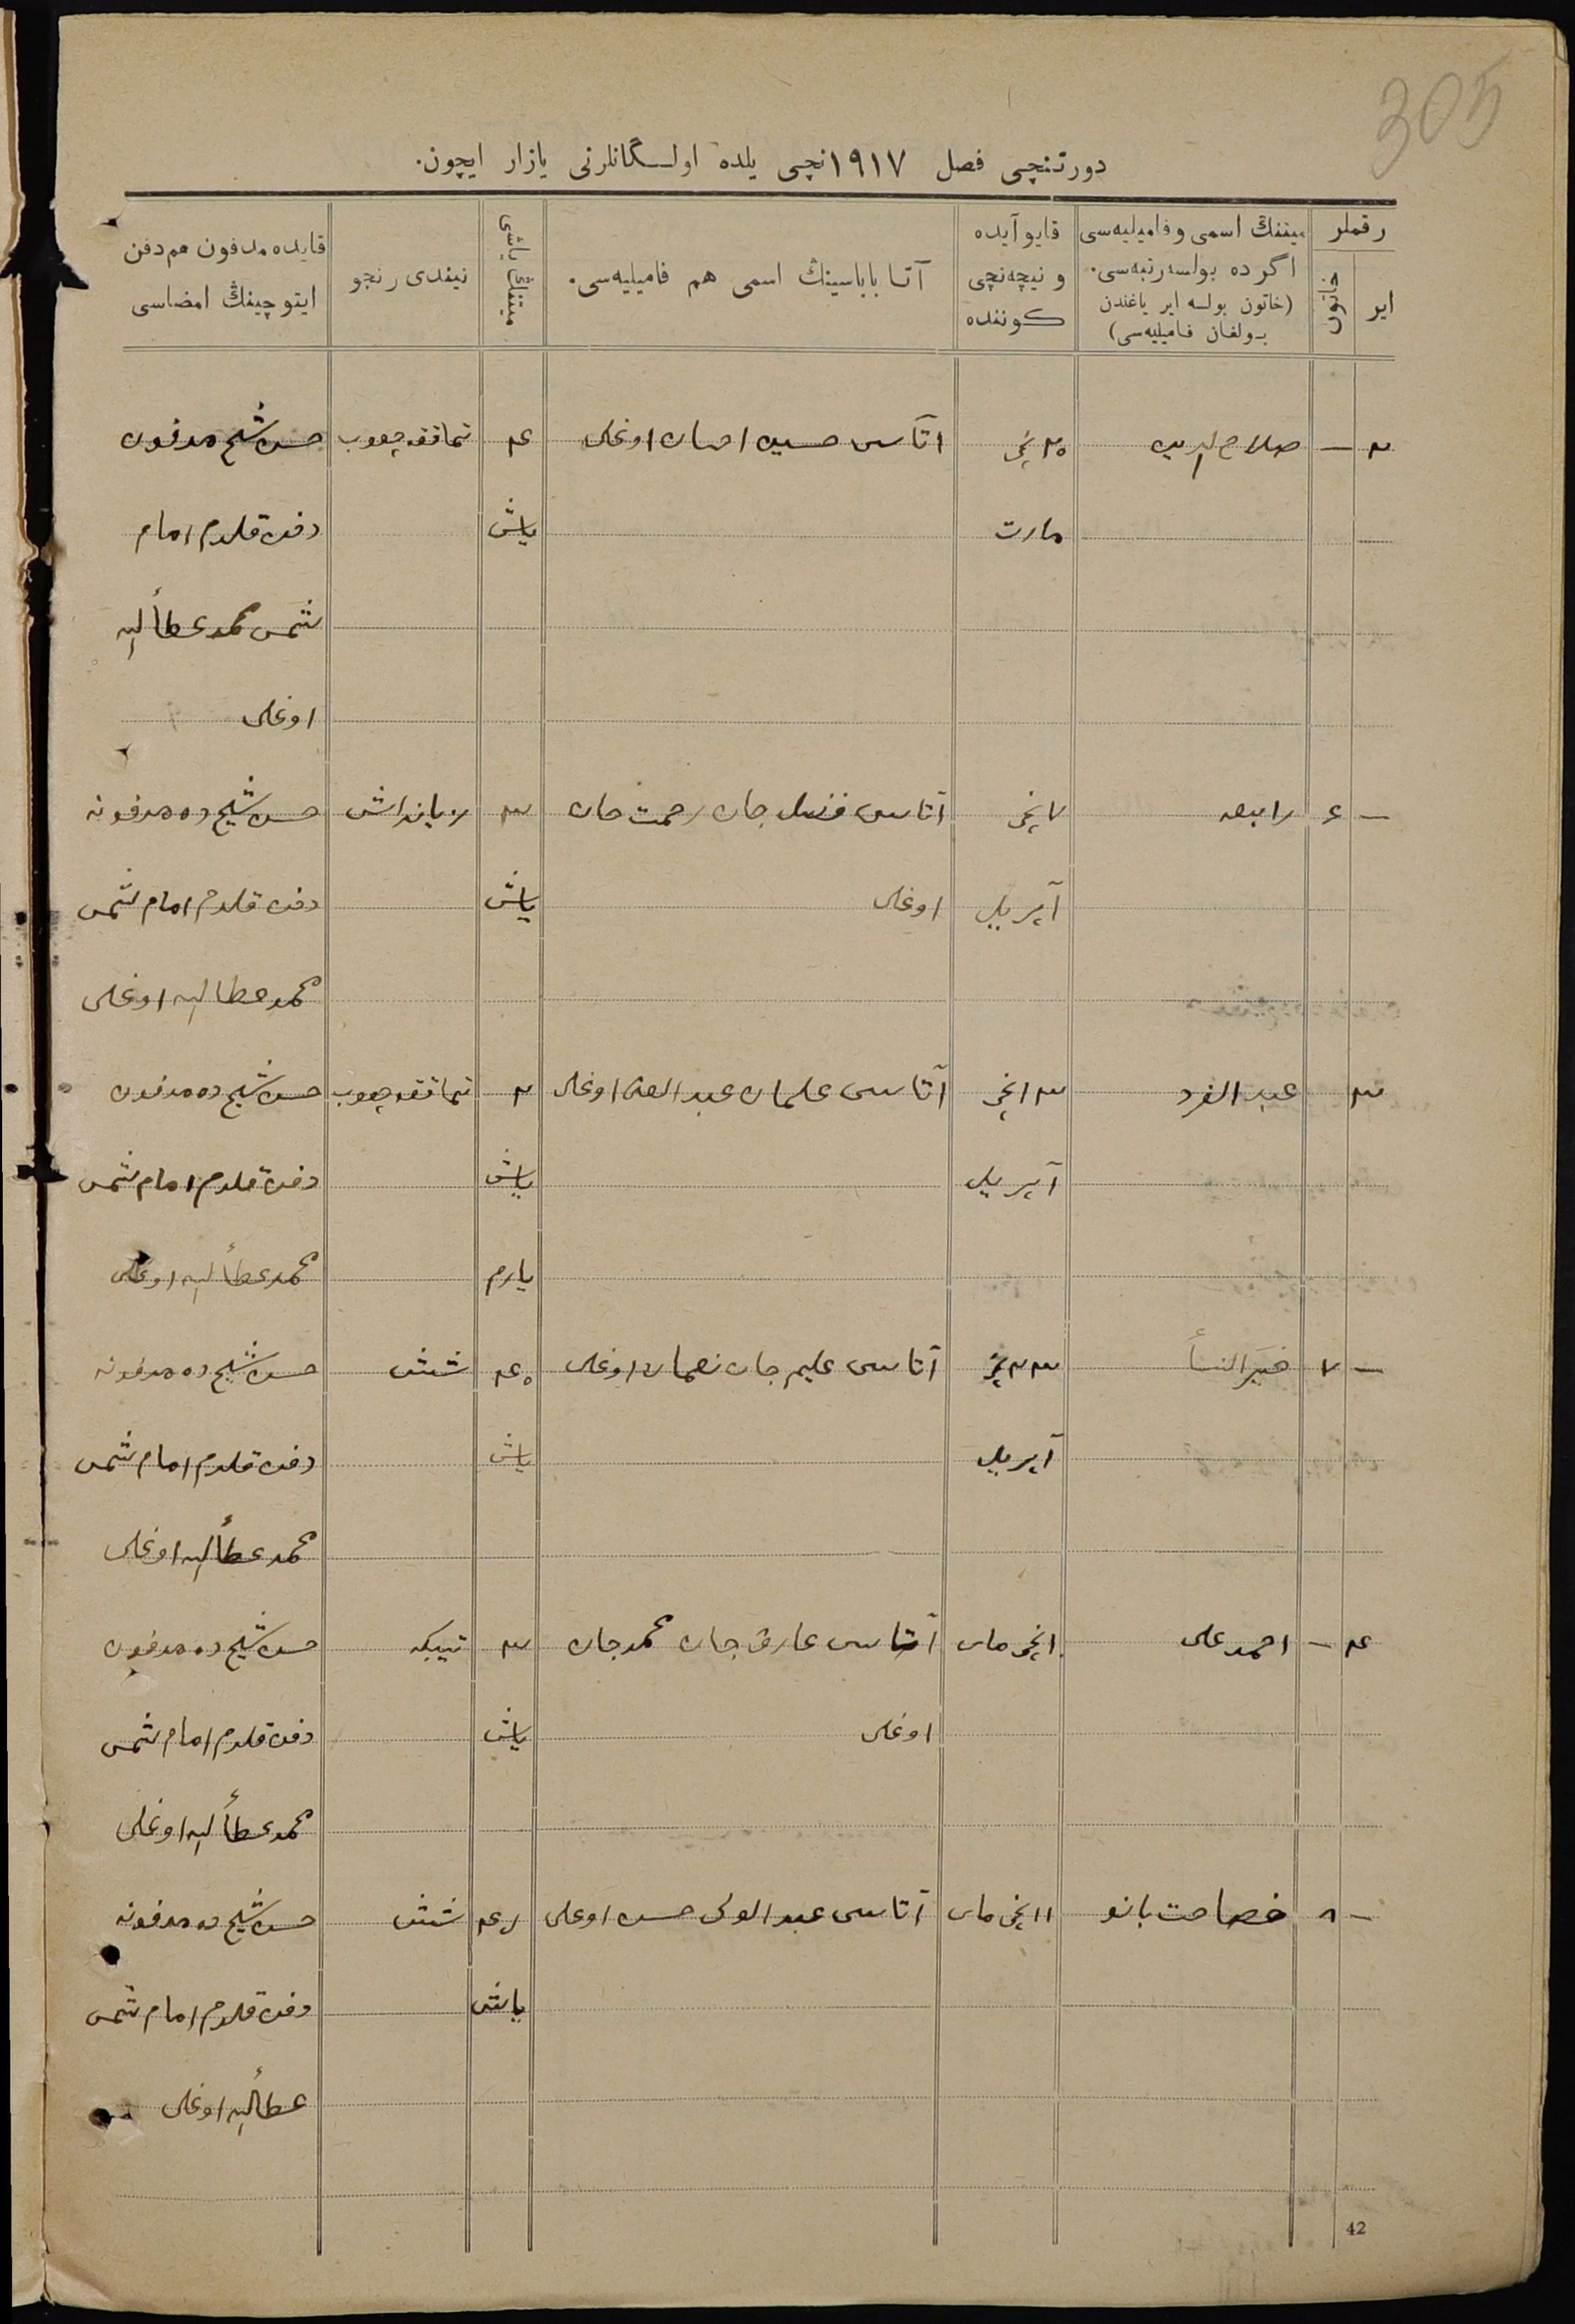 305
دورتنچی فصل ۱۹۱۷نچی یلده اولـگانلرنی یازار ایچون.
رقملر
ایر
خاتون
میتنڭ اسمی و فامیلیه‌سی
اگر ده بولسه رتبه‌سی.
(خاتون بولسه ایر یاغندن
بـولغان فامیلیه‌سی)
قایو آیده
و نیچه‌نچی
كوننده
آتـا باباسینڭ اسمی هم فامیلیه‌سی.
میتنڭ یاشی
نیندی رنجو
قایده مدفون هم دفن
ایتوچینڭ امضاسی
۲ — صلاح الدین ۲۵نچی آتاسی حسین احسان اوغلی ۴ تماققه چعوب حسن شیخ مدفون
مارت یاش دفن قلدم امام
شمس محمد عطأ الله
اوغلی
— ۶ رابعه ۷نچی آتاسی فضل جان رحمت جان ۳ حسن شیخ ده مدفونه
آپریل اوغلی یاش دفن قلدم امام شمس
محمد عطا الله اوغلی
۳ عبد الفرد ۱۳نچی آتاسی علمان عبد الغنی اوغلی ۲ تماققه چعوب حسن شیخ ده مدفون
آپریل یاش دفن قلدم امام شمس
یارم محمد عطأ الله اوغلی
— ۷ خیر النسأ ۲۳نچی آتاسی علیم جان نعمان اوغلی ۴۵ شش حسن شیخ ده مدفونه
آپریل یاش دفن قلدم امام شمس
محمد عطأ الله اوغلی
۴ — احمد علی ۱نچی مای آتاسی عارف جان محمد جان ۳ حسن شیخ ده مدفون
اوغلی یاش دفن قلدم امام شمس
محمد عطأ الله اوغلی
— ۸ فصاحت بانو ۱۱نچی مای آتاسی عبد الولی حسن اوغلی شش حسن شیخ ده مدفونه
یاش دفن قلدم امام شمس
عطأ الله اوغلی
42